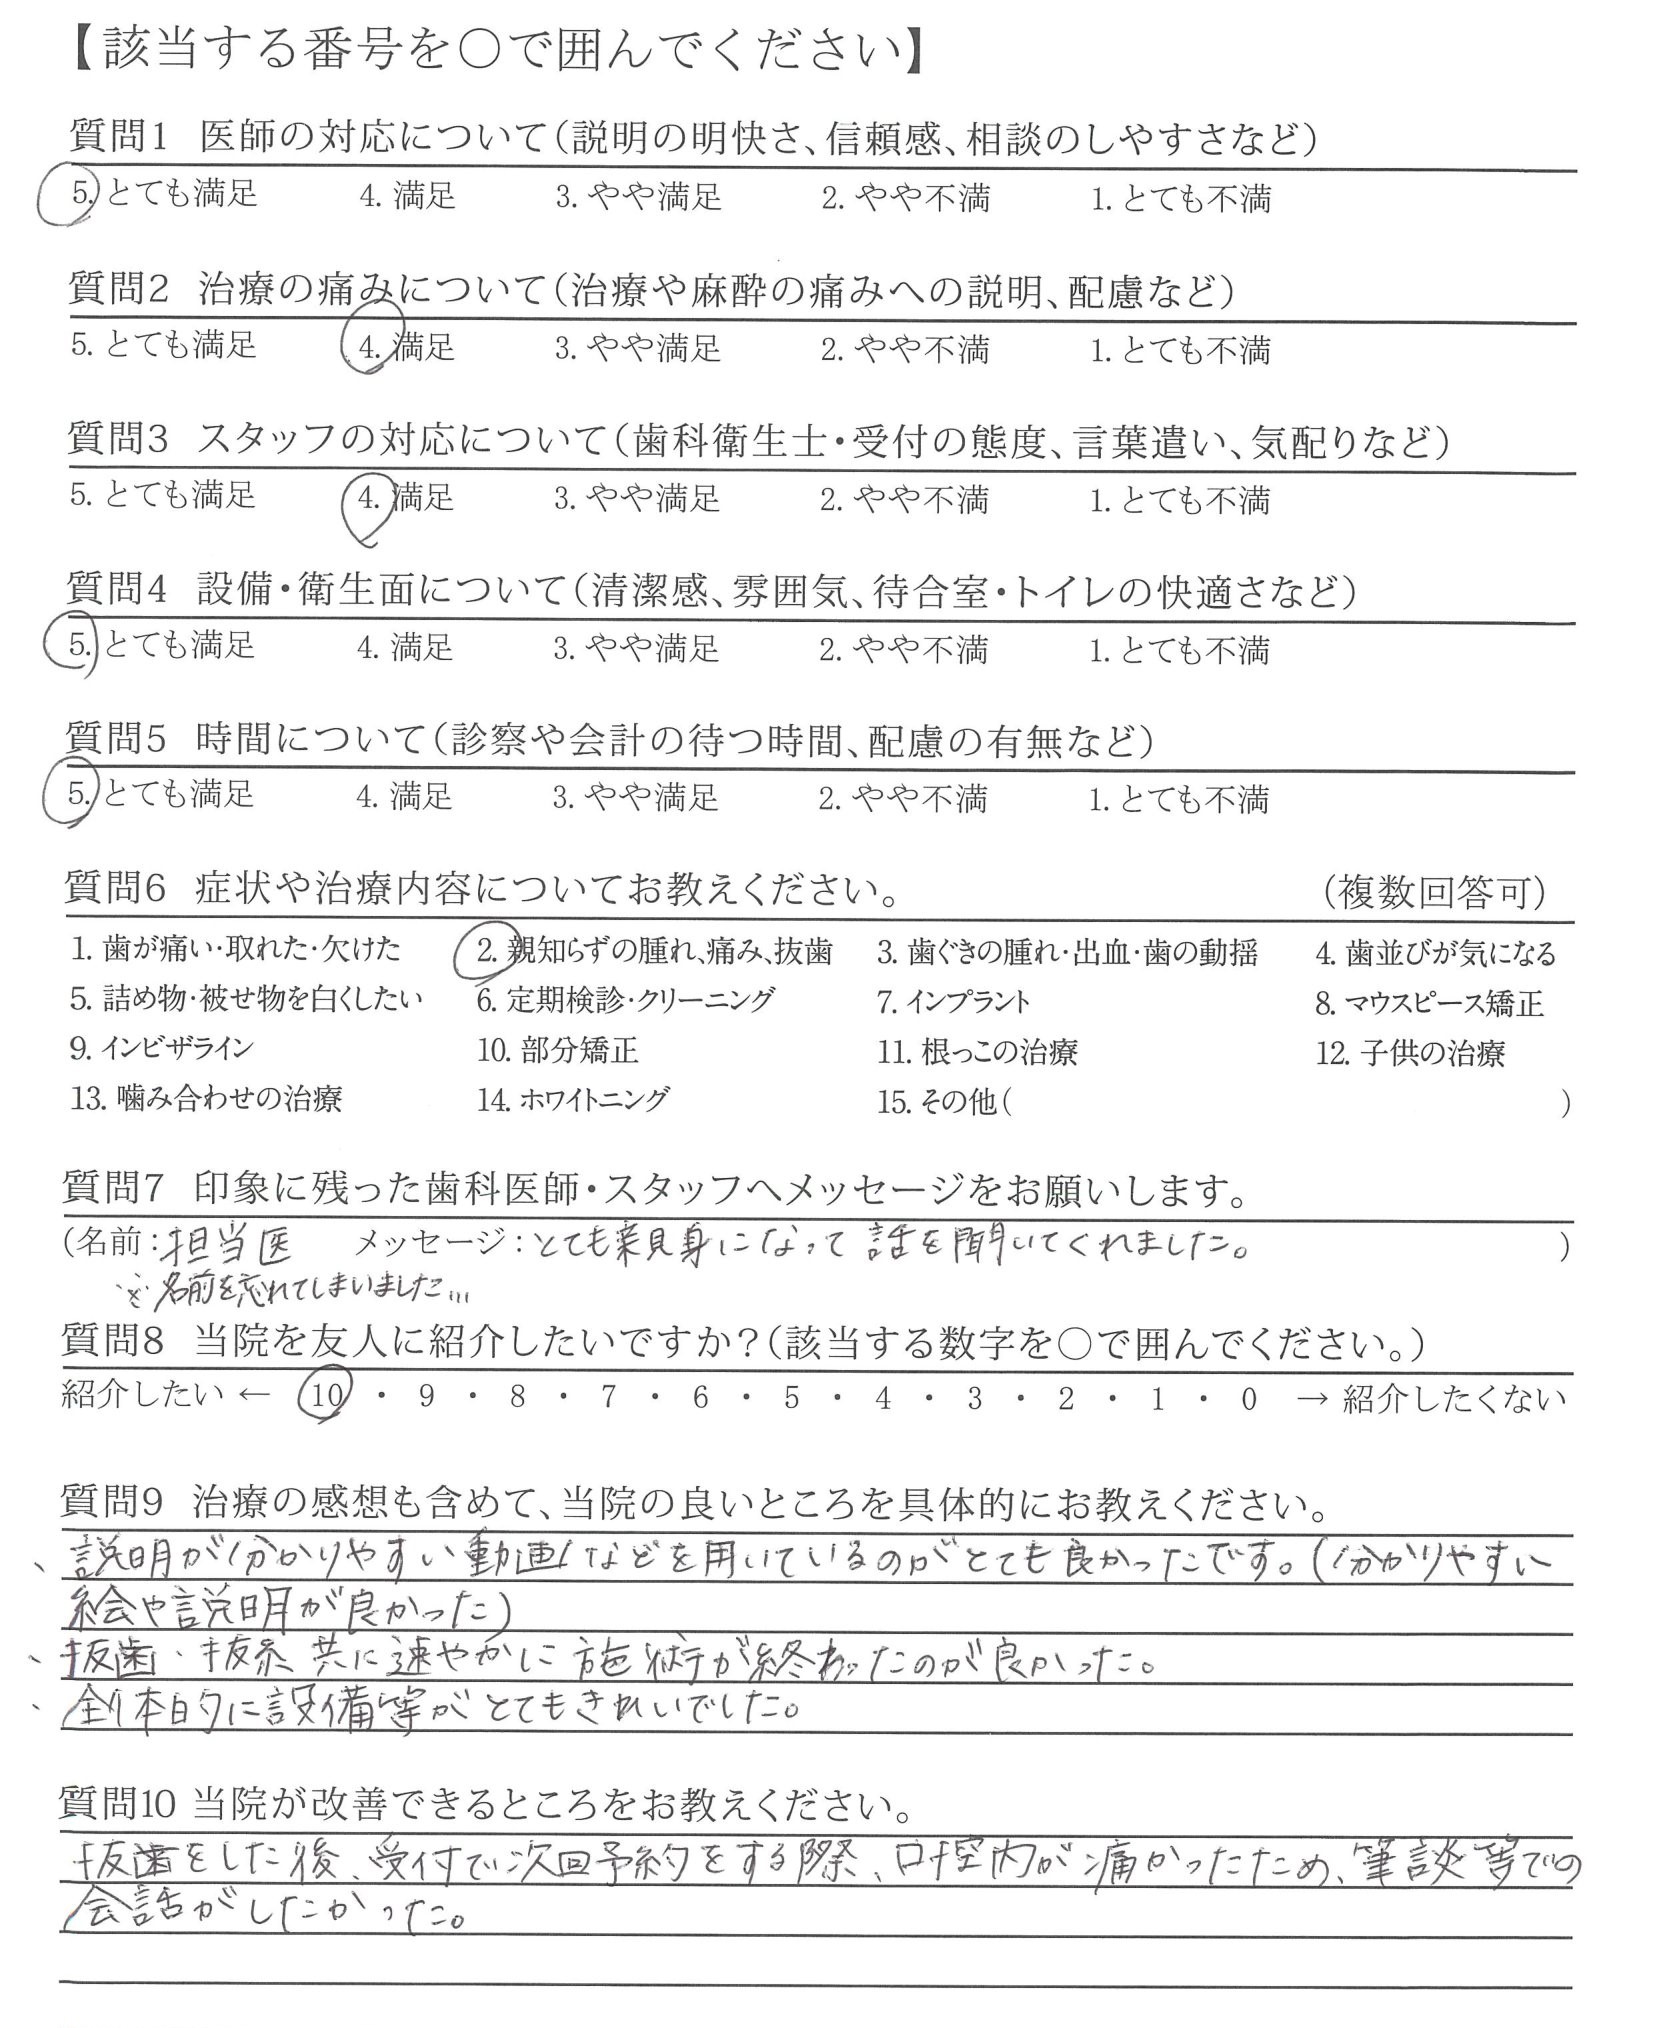 【該当する番号を○で囲んでください】
質問1 医師の対応について(説明の明快さ、信頼感、相談のしやすさなど)
5. とても満足 4. 満足 3. やや満足 2. やや不満 1. とても不満
質問2 治療の痛みについて(治療や麻酔の痛みへの説明、配慮など)
5. とても満足 4. 満足 3. やや満足 2. やや不満 1. とても不満
質問3 スタッフの対応について(歯科衛生士・受付の態度、言葉遣い、気配りなど)
5. とても満足 4. 満足 3. やや満足 2. やや不満 1. とても不満
質問4 設備・衛生面について(清潔感、雰囲気、待合室・トイレの快適さなど)
5. とても満足 4. 満足 3. やや満足 2. やや不満 1. とても不満
質問5 時間について(診察や会計の待つ時間、配慮の有無など)
5. とても満足 4. 満足 3. やや満足 2. やや不満 1. とても不満
質問6 症状や治療内容についてお教えください。 (複数回答可)
1. 歯が痛い・取れた・欠けた 2. 親知らずの腫れ、痛み、抜歯 3. 歯ぐきの腫れ・出血・歯の動揺 4. 歯並びが気になる
5. 詰め物・被せ物を白くしたい 6. 定期検診・クリーニング 7. インプラント 8. マウスピース矯正
9. インビザライン 10. 部分矯正 11. 根っこの治療 12. 子供の治療
13. 噛み合わせの治療 14. ホワイトニング 15. その他( )
質問7 印象に残った歯科医師・スタッフへメッセージをお願いします。
(名前:担当医 メッセージ:とても親身になって話を聞いてくれました。 )
※名前を忘れてしまいました…
質問8 当院を友人に紹介したいですか?(該当する数字を○で囲んでください。)
紹介したい ← 10 ・ 9 ・ 8 ・ 7 ・ 6 ・ 5 ・ 4 ・ 3 ・ 2 ・ 1 ・ 0 → 紹介したくない
質問9 治療の感想も含めて、当院の良いところを具体的にお教えください。
、説明が分かりやすい動画などを用いているのがとても良かったです。(分かりやすい
絵や説明が良かった)
、抜歯・抜糸共に速やかに施術が終わったのが良かった。
、全体的に設備等がとてもきれいでした。
質問10 当院が改善できるところをお教えください。
抜歯をした後、受付で次回予約をする際、口腔内が痛かったため、筆談等での
会話がしたかった。